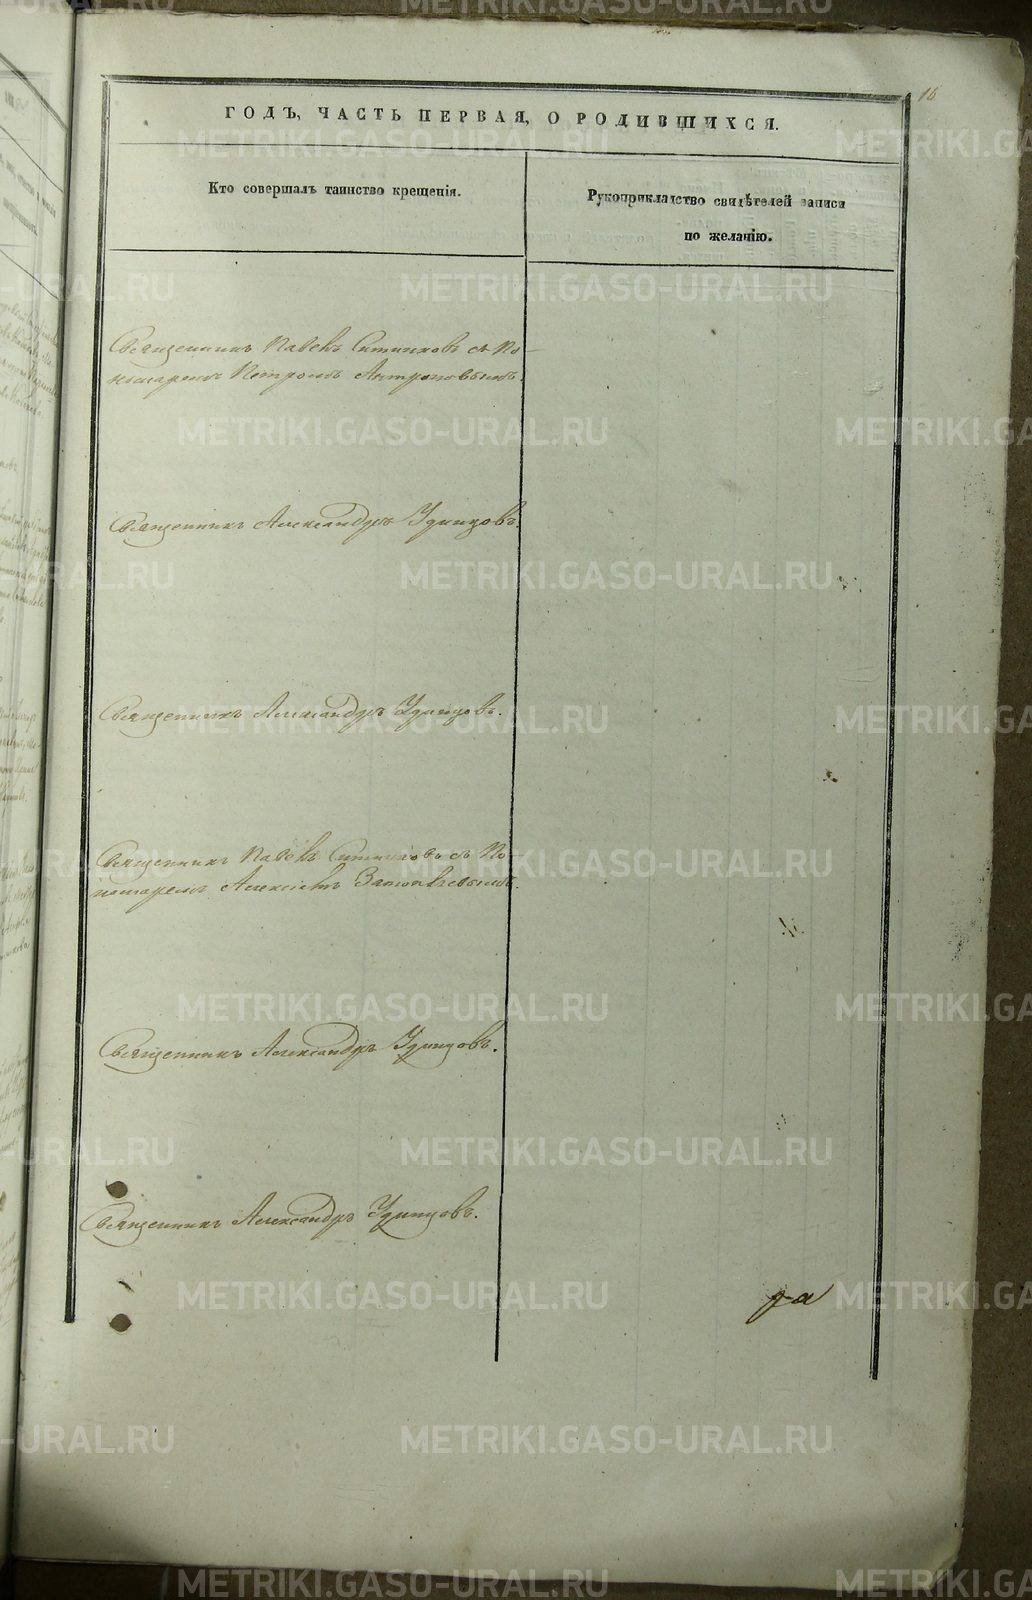 16
ГОДЪ, ЧАСТЬ ПЕРВАЯ, О РОДИВШИХСЯ.
Кто совершалъ таинство крещенія.
Рукоприкладство свидѣтелей записи
по желанію.
Священникъ Павелъ Ситниковъ съ По-
номаремъ Петромъ Антроповымъ.
Священникъ Александръ Удинцовъ.
Священникъ Александръ Удинцовъ.
Священникъ Павелъ Ситниковъ съ По-
номаремъ Алексіемъ
Священникъ Александръ Удинцовъ.
Священникъ Александръ Удинцовъ.
METRIKI.GASO-URAL.RU